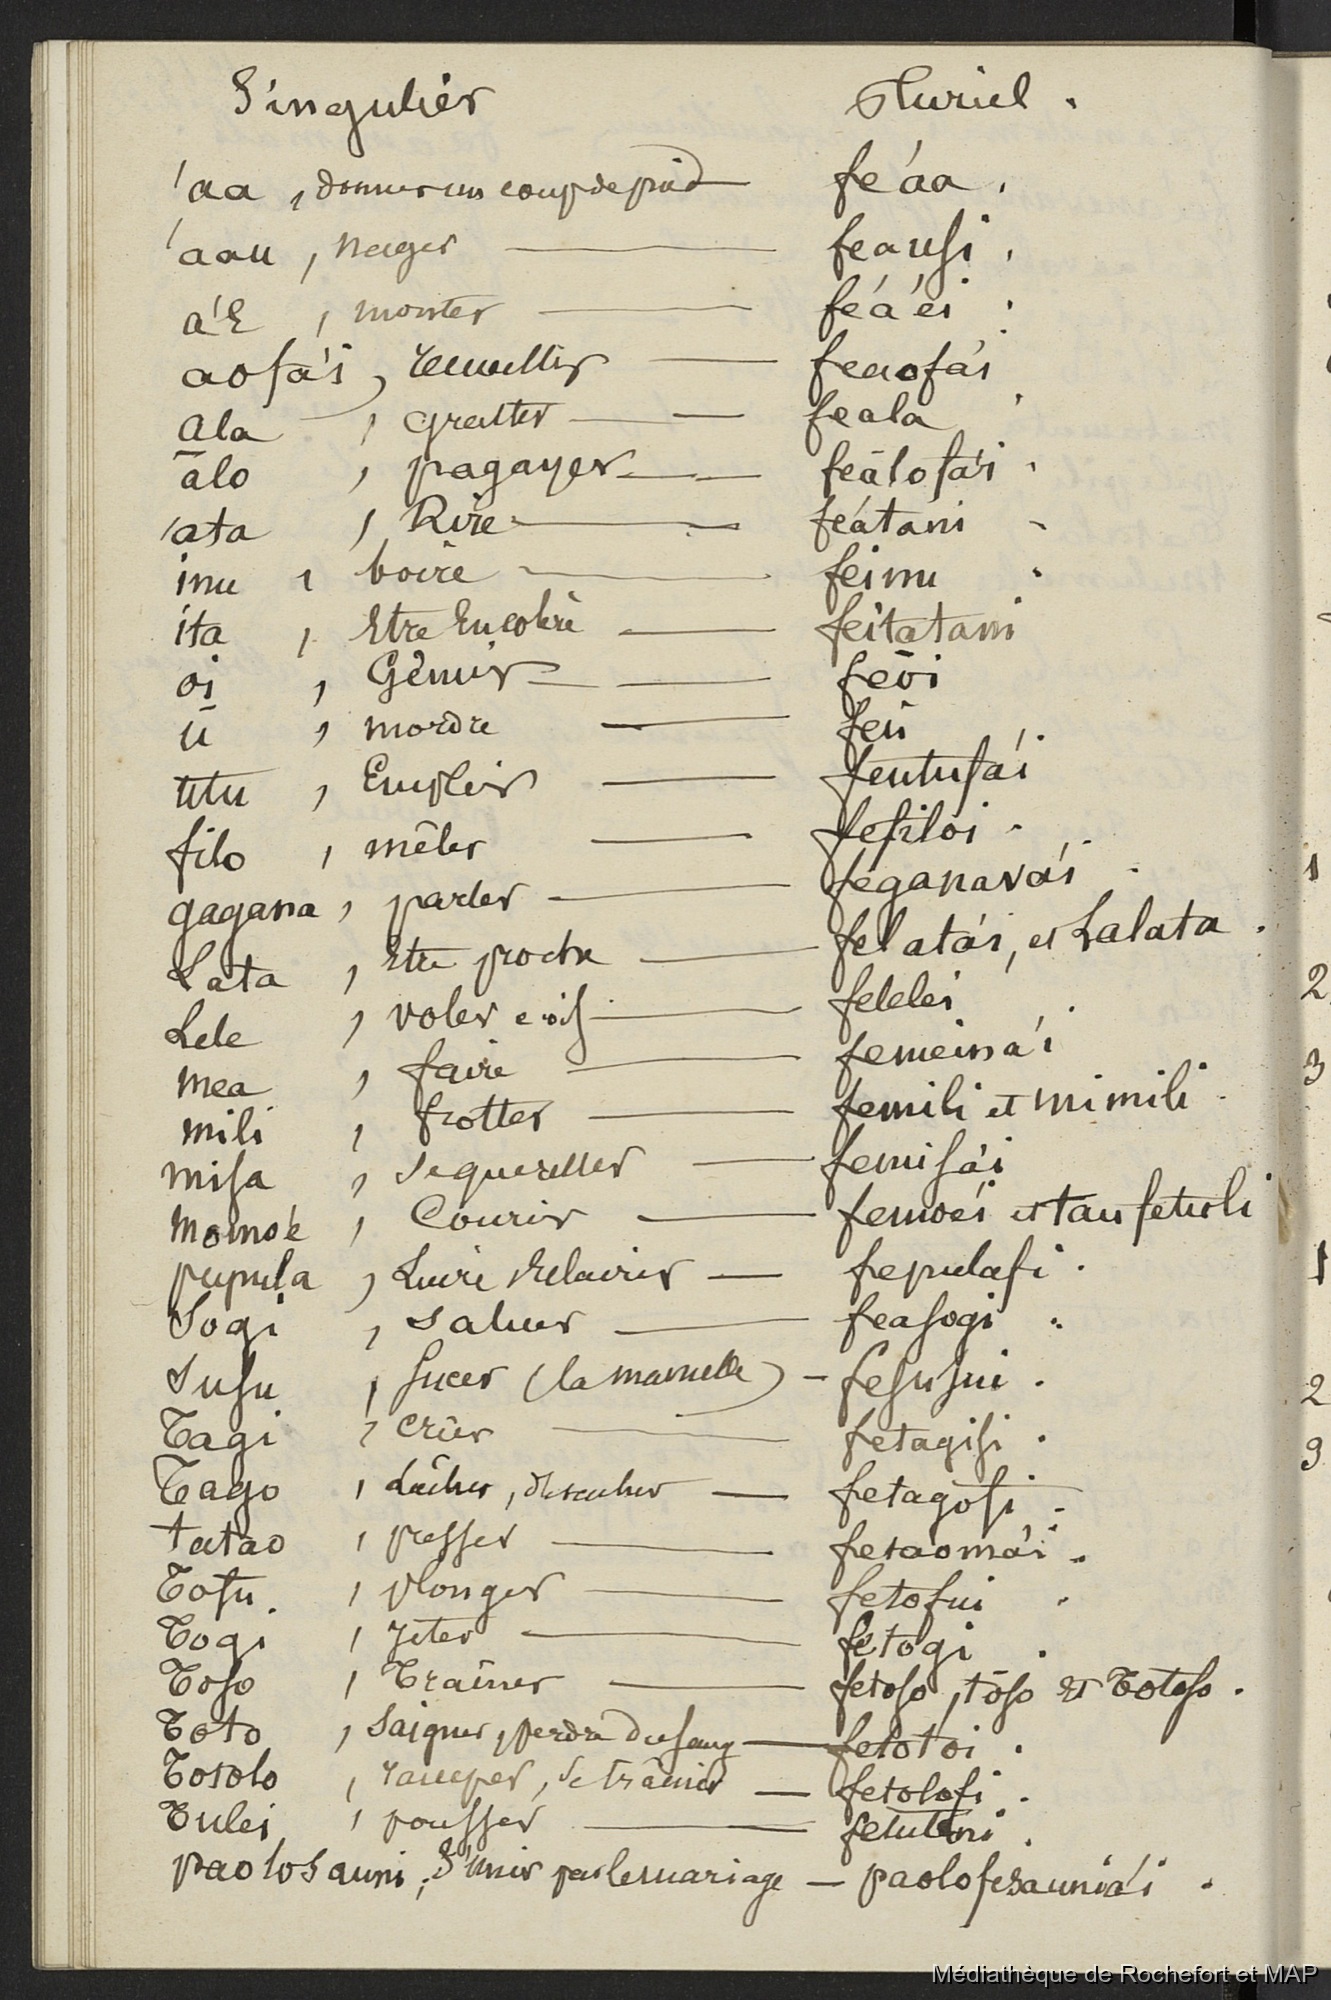 Singulier Pluriel.
'aa, donner un coup de pied — fe'áa.
'aau, nager — feausi.
á'E, monter — fe'á'éi.
aofá'i, recueillir — feaofá'i
ala, gratter — feala
ālo, pagayer — feālofá'i
'ata, Rire — feátani
inu, boire — feinu
ita, Etre En colère — feitatani
oi, Gêmir — feōi
ū, mordre — feū
utu, Emplir — feutufá'i
filo, mêler — fefiloi.
gagana, parler — féganavá'i
Lata, Etre proche — felatá'i, et Lalata.
Lele, voler — felelei
mea, faire — femeiná'i
mili, frotter — femili et mimili
misa, se quereller — femisá'i
momo'e, Courir — femoéi et taufetuli
pupula, Luire Eclairer — fepulafi.
Sogi, saluer — feasogi
Susu, sucer (la mamelle) — fesusui.
Tagi, crier — fetagisi.
Tago, — fetagofi.
tatao, presser — fetaomá'i.
Tofu, plonger — fetofui
Togi, jeter — fetogi.
Toso, Traîner — fetoso, tōso et Totoso.
Toto, Saigner, perdre du sang — fetotoi.
Totolo, ramper, se traîner — fetolofi.
Tulei, pousser — fetuleni.
paolotauni, S'unir par le mariage — paolofetauniá'i.
1
2
3
1
2
3
Médiathèque de Rochefort et MAP